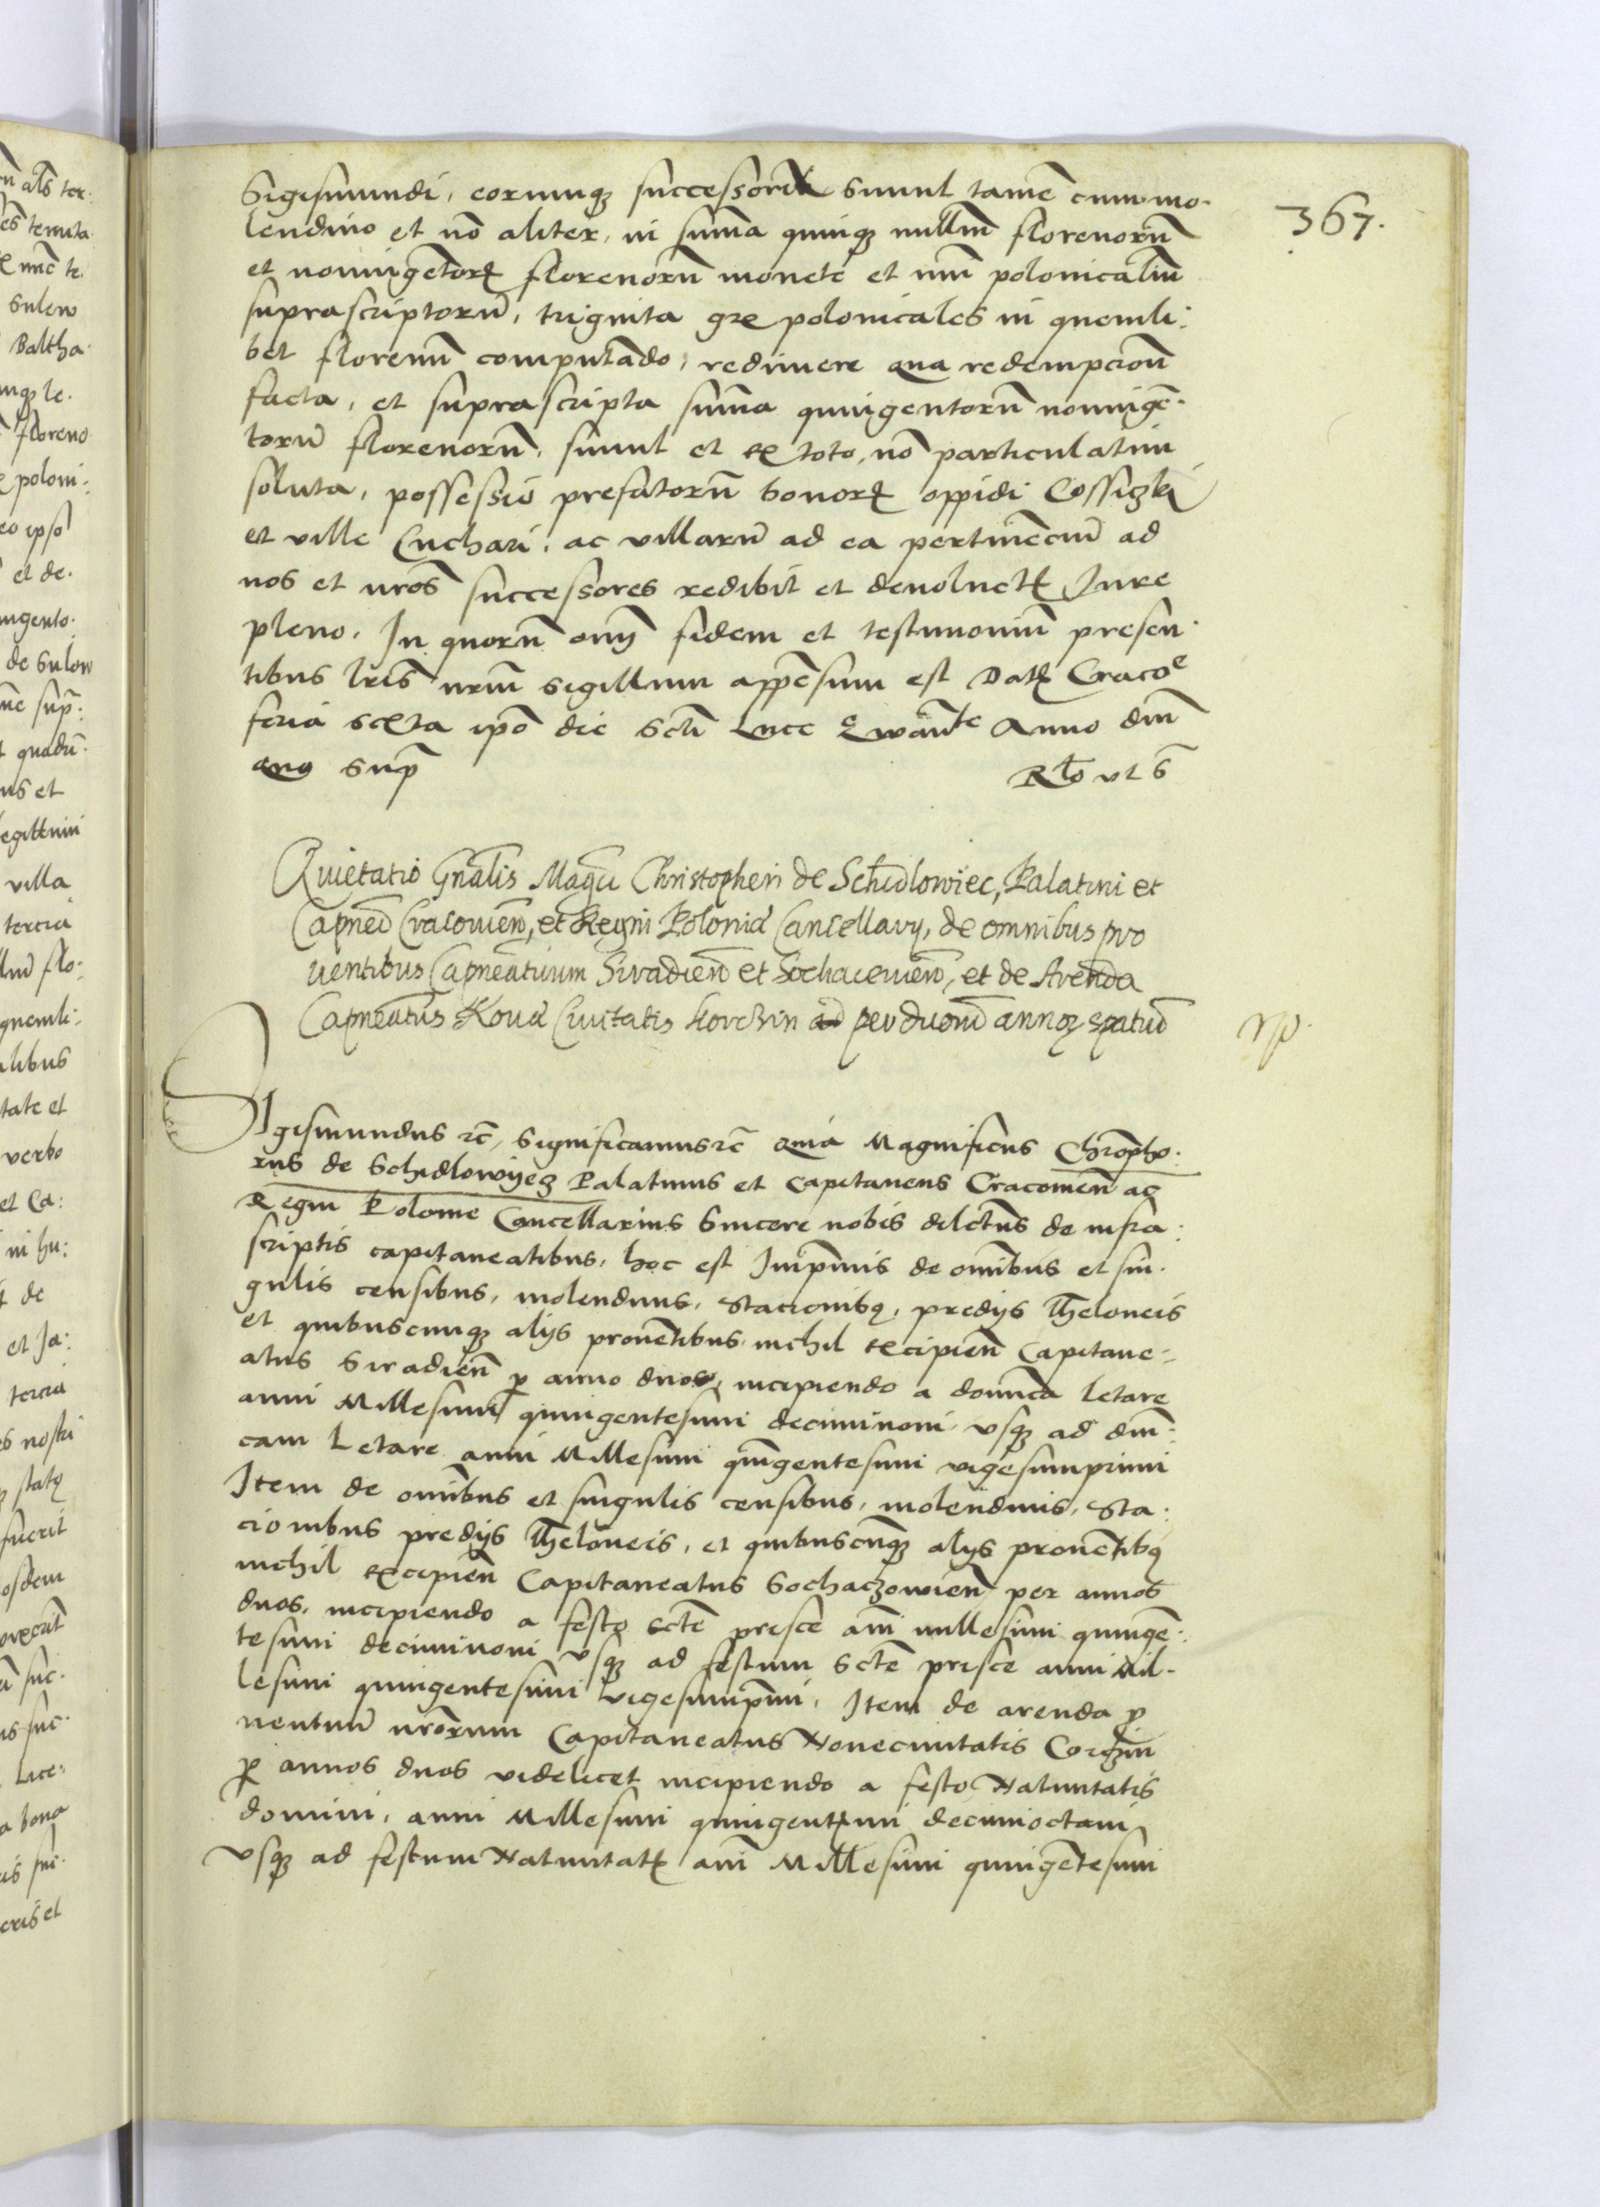 367.
Sigismundi, eorumq3 successorū simul tamē cum mo.
lendino et nō aliter, in suma quinq3 millium florenorū
et noningētorꝝ florenorū monete et nūi polonicaliū
suprascriptorū, triginta gre polonicales in quemli:
bet florenū computādo, redimere qua redempcione
facta, et suprascripta suma quingentorū nonnigē:
torū florenorū, simul et ex toto, nō particulatim
soluta, possessio prefatorū bonorꝝ oppidi Cossiczki
et ville Cuchari, ac villarū ad ea pertinēciū ad
nos et nros successores redibit et devoluetꝝ Jure
pleno. In quorū omj fidem et testimoniū presen
tibus lris nrūm sigillum appēsum est Datꝝ Cracoe
feria sexta ipō die Scti Luce Ewāte Anno dni
quo supra
Rlō vt S
Quietatio Gnālis Magci Christopheri de Schidlowiec, Palatini et
Capnei Cracovien, et Regni Poloniæ Cancellarij, de omnibus pro
ventibus Capneatuum Siradien et Sochacevien, et de Arenda
Capneatus Novæ Civitatis Korchin ad per duorū annoꝝ spatiū
Sigismundus rc, Significamus rc Quia Magnificus Chrōpho:
rus de Schidlowyecz Palatinus et Capitaneus Cracovien ac
Regni Polonie Cancellarius Sincere nobis dilectus de infra:
scriptis capitaneatibus, hoc est Imprimis de omībus et sin.
gulis censibus, molendinis, Stacionibꝰ, predijs Theloneis
et quibuscumq3 alijs provētibus nichil excipien Capitane:
atus Siradien p anno duos, incipiendo a donnca Letare
anni Millesimi quingentesimi deciminoni vsq3 ad dni:
cam Letare anni Millesimi quīgentesimi vigesimiprimi
Item de omībus et singulis censibus, molendinis, Sta:
cionibus predijs Theloneis, et quibuscūq3 alijs provētibꝰ
nichil excipien Capitaneatus Sochaczowien per annos
duos, incipiendo a festo Scte prisce anni millesimi quingē:
tesimi deciminoni vsq3 ad festum Scte prisce anni Mil-
lesimi quingentesimi vigesimipmi, Item de arenda p
ventuū nrorum Capitaneatus Novecivitatis Corczin
p annos duos videlicet incipiendo a festo Natiuitatis
domini, anni Millesimi quingentꝝimi decimioctavi
vsq3 ad festum Natiuitatꝝ ani Millesimi quingētesimi